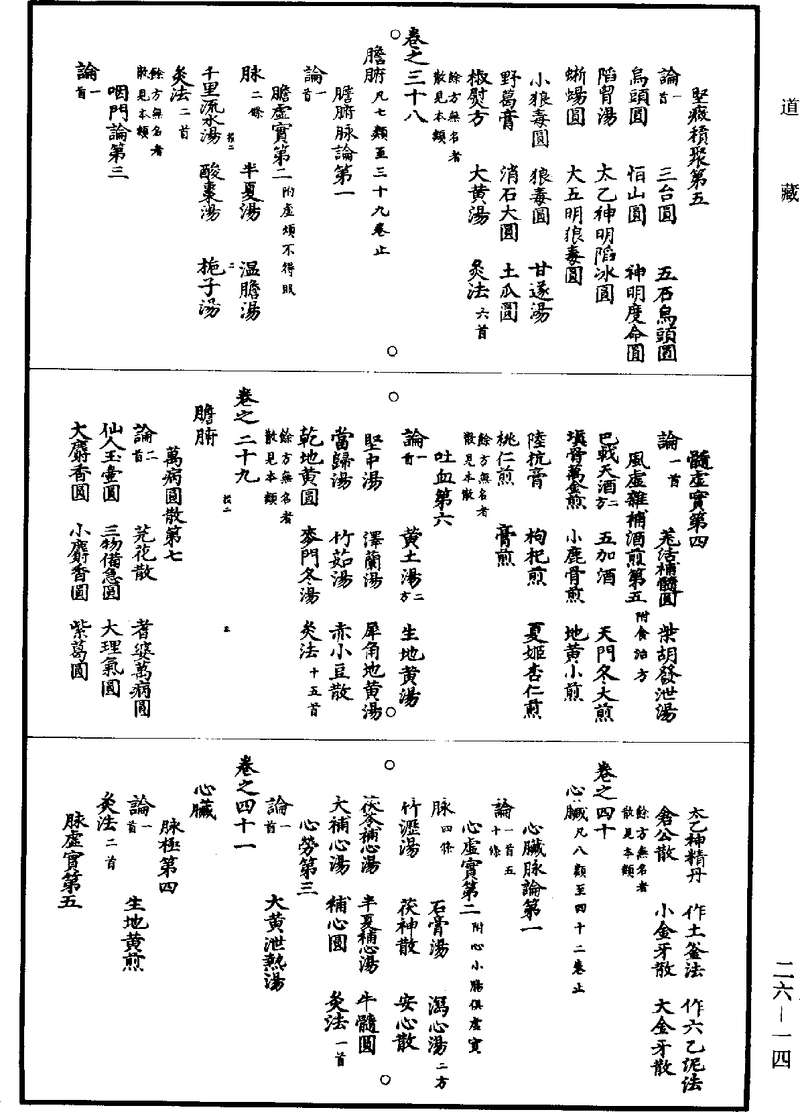 道藏
堅癥積聚第五
論一首 三台圓 五石烏頭圓
烏頭圓 恒山圓 神明度命圓
陷胃湯 太乙神明陷冰圓
蜥蜴圓 大五明狼毒圓
小狼毒圓 狼毒圓 甘遂湯
野葛膏 消石大圓 土瓜圓
椒熨方 大黄湯 灸法六首
餘方無名者散見本類
卷之三十八
膽腑凡七類至三十九卷止
膽腑脉論第一
論一首
膽虛實第二附虛煩不得眠
脉二條 半夏湯 温膽湯
千里流水湯 酸棗湯 梔子湯
灸法二首
餘方無名者散見本類
咽門論第三
論一首
髓虛實第四
論一首 羌活補髓圓 柴胡發泄湯
風虛雜補酒煎第五附食治方
巴戟天酒二方 五加酒 天門冬大煎
填骨萬金煎 小鹿骨煎 地黄小煎
陸抗膏 枸杞煎 夏姬杏仁煎
桃仁煎 膏煎
餘方無名者散見本散
吐血第六
論一首 黄土湯二方 生地黄湯
堅中湯 澤蘭湯 犀角地黄湯
當歸湯 竹茹湯 赤小豆散
乾地黄圓 麥門冬湯 灸法十五首
餘方無名者散見本類
卷之二十九
膽腑
萬病圓散第七
論二首 芫花散 耆婆萬病圓
仙人玉壷圓 三物備急圓 大理氣圓
大麝香圓 小麝香圓 紫葛圓
太乙神精丹 作土釜法 作六乙泥法
倉公散 小金牙散 大金牙散
餘方無名者散見本類
卷之四十
心臟凡八類至四十二卷止
心臟脉論第一
論一首五十條
心虛實第二附心小腸俱虛實
脉四條 石膏湯 瀉心湯二方
竹瀝湯 茯神散 安心散
茯苓補心湯 半夏補心湯 牛髓圓
大補心湯 補心圓 灸法一首
心勞第三
論一首 大黄泄熱湯
卷之四十一
心臟
脉極第四
論一首 生地黄煎
灸法二首
脉虛實第五
二六—一四